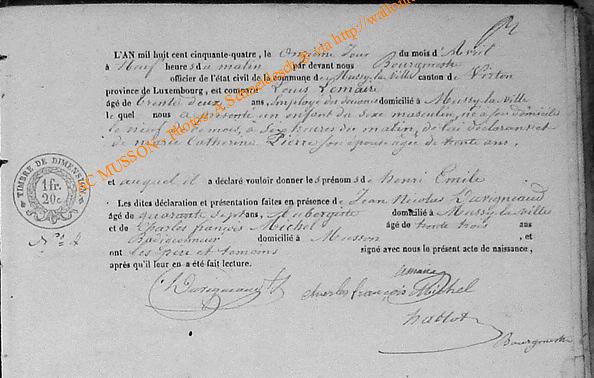 L'AN mil huit cent cinquante-quatre, le onzième jour du mois d'Avril
à Neuf heures du matin par devant nous Bourgmestre
officier de l'état civil de la commune de Mussy-la-Ville canton de Virton
province de Luxembourg, est comparu Louis Lemaire
âgé de trente deux ans, Employé des douanes domicilié à Mussy-la-Ville
le quel nous a présenté un enfant du sexe masculin, né à son domicile
le neuf de ce mois, à six heures du matin, de lui déclarant et
de Marie Catherine Pierre son épouse agée de trente ans,
et auquel il a déclaré vouloir donner les prénoms de henri Emile
Les dites déclaration et présentation faites en présence de Jean Nicolas
âgé de quarante sept ans, Aubergiste domicilié à Mussy-la-Ville
et de Charles françois Michel âgé de trente trois ans
domicilié à Musson , et
ont les père et témoins signé avec nous le présent acte de naissance,
après qu'il leur en a été fait lecture.
TIMBRE DE DIMENSION
1 fr.
20 c.
charles françois Michel
Bourgmestre